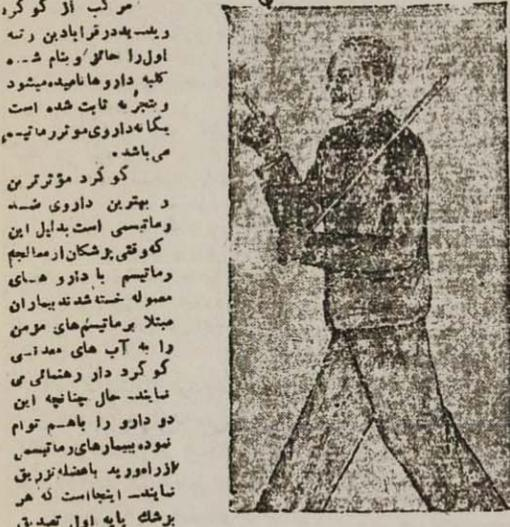 مرکب از کوکرد
و یـدـید درقرابادین رتبه
اول را حائز و بنام شـه
کلیه داروها نامیده میشود
و بتجربه ثابت شده است
یگانه داروی موثر رماتیسم
می باشد.
کوکرد مؤثرترین
و بهترین داروی ضد
رماتیسمی است بدلیل این
که وقتی پزشکان از معالجه
رماتیسم با دارو هـای
معموله خسته شدند بیماران
مبتلا برماتیسم‌های مزمن
را به آب های معدنـی
کوکرد دار رهنمائی می
نمایند_ حال چنانچه این
دو دارو را باهـم توام
نموده بیمارهای رماتیسمی
ازراه ورید یاعضله تزریق
نمایند_ اینجااست که هر
پزشک پایه اول تصدیق